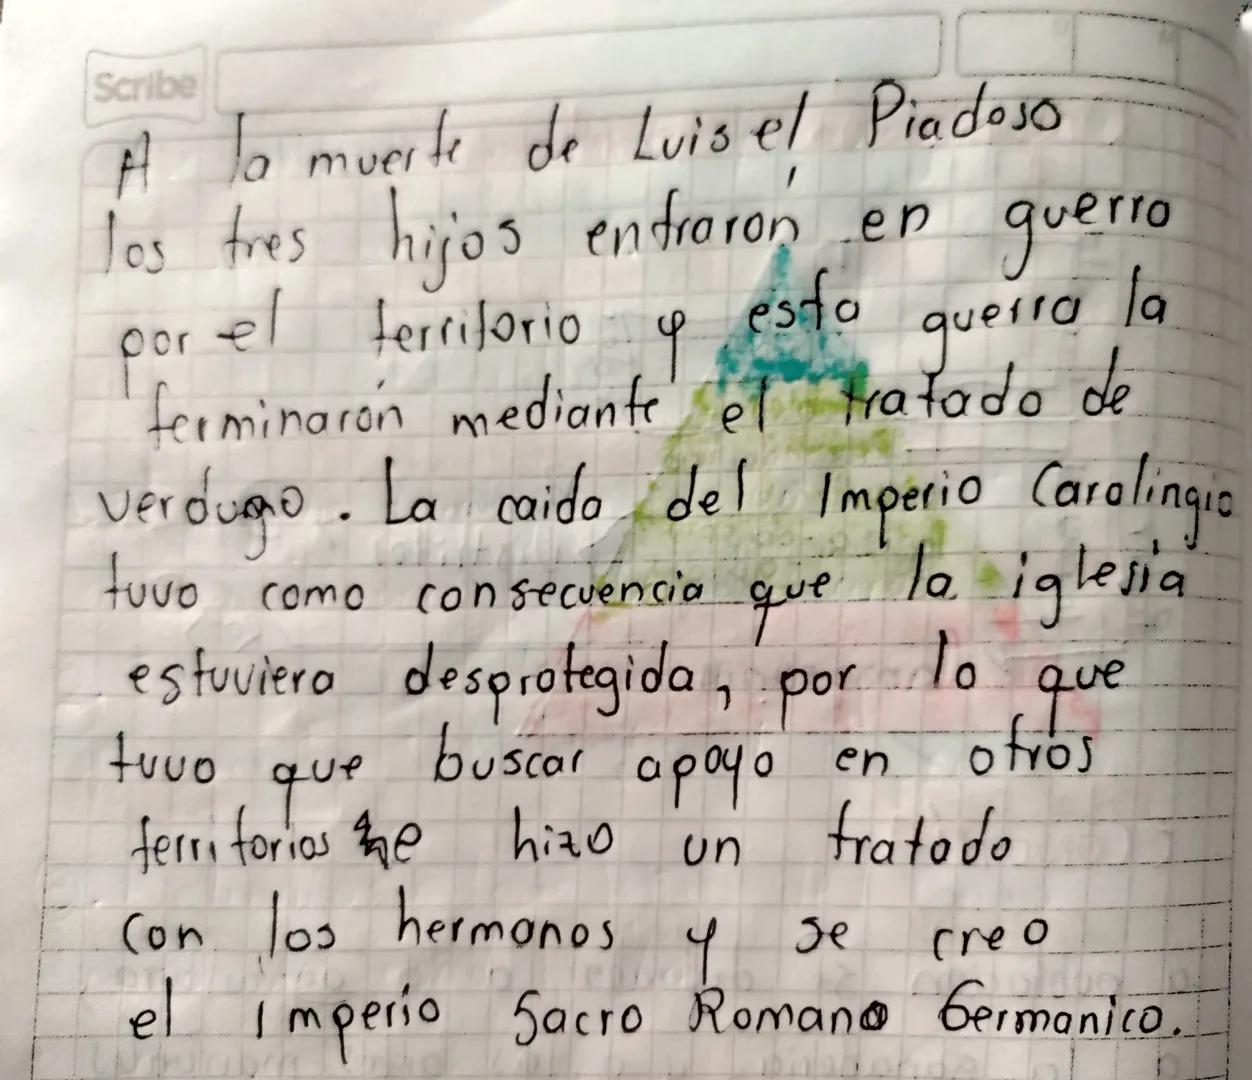 Scribe
A la muerte de Luis el Piadoso
los tres hijos entrarón en guerra
por el territorio y esta guerra la
terminarón mediante el tratado de
verdugo. La caida del Imperio Carolingio
tuvo como consecuencia que la iglesia
estuviera desprotegida, por lo que
tuvo que buscar apoyo en otros
territorios he hizo un tratado
con los hermanos y se creo
el Imperio Sacro Romano Germanico.